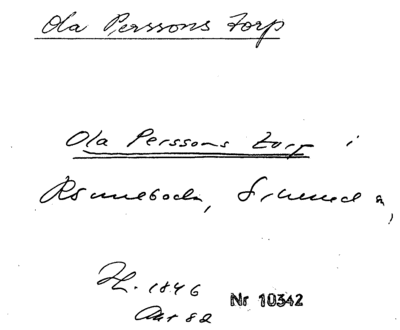 Ola Perssons Torp
Ola Perssons torp i
HL. 1846
Akt 82 Nr 10342